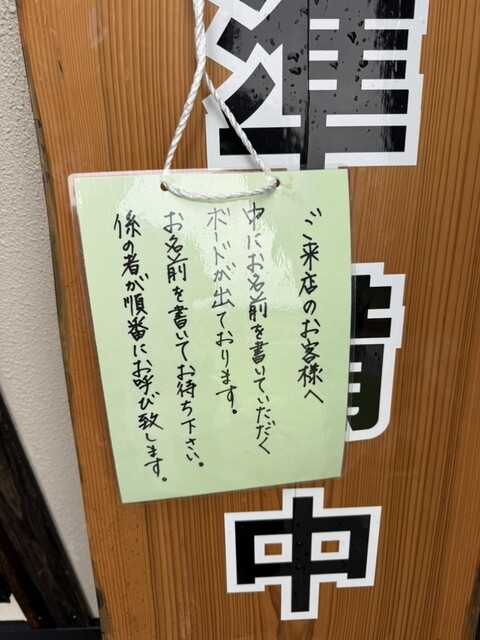 準備中
ご来店のお客様へ
中にお名前を書いていただく
ボードが出ております。
お名前を書いてお待ち下さい。
係の者が順番にお呼び致します。